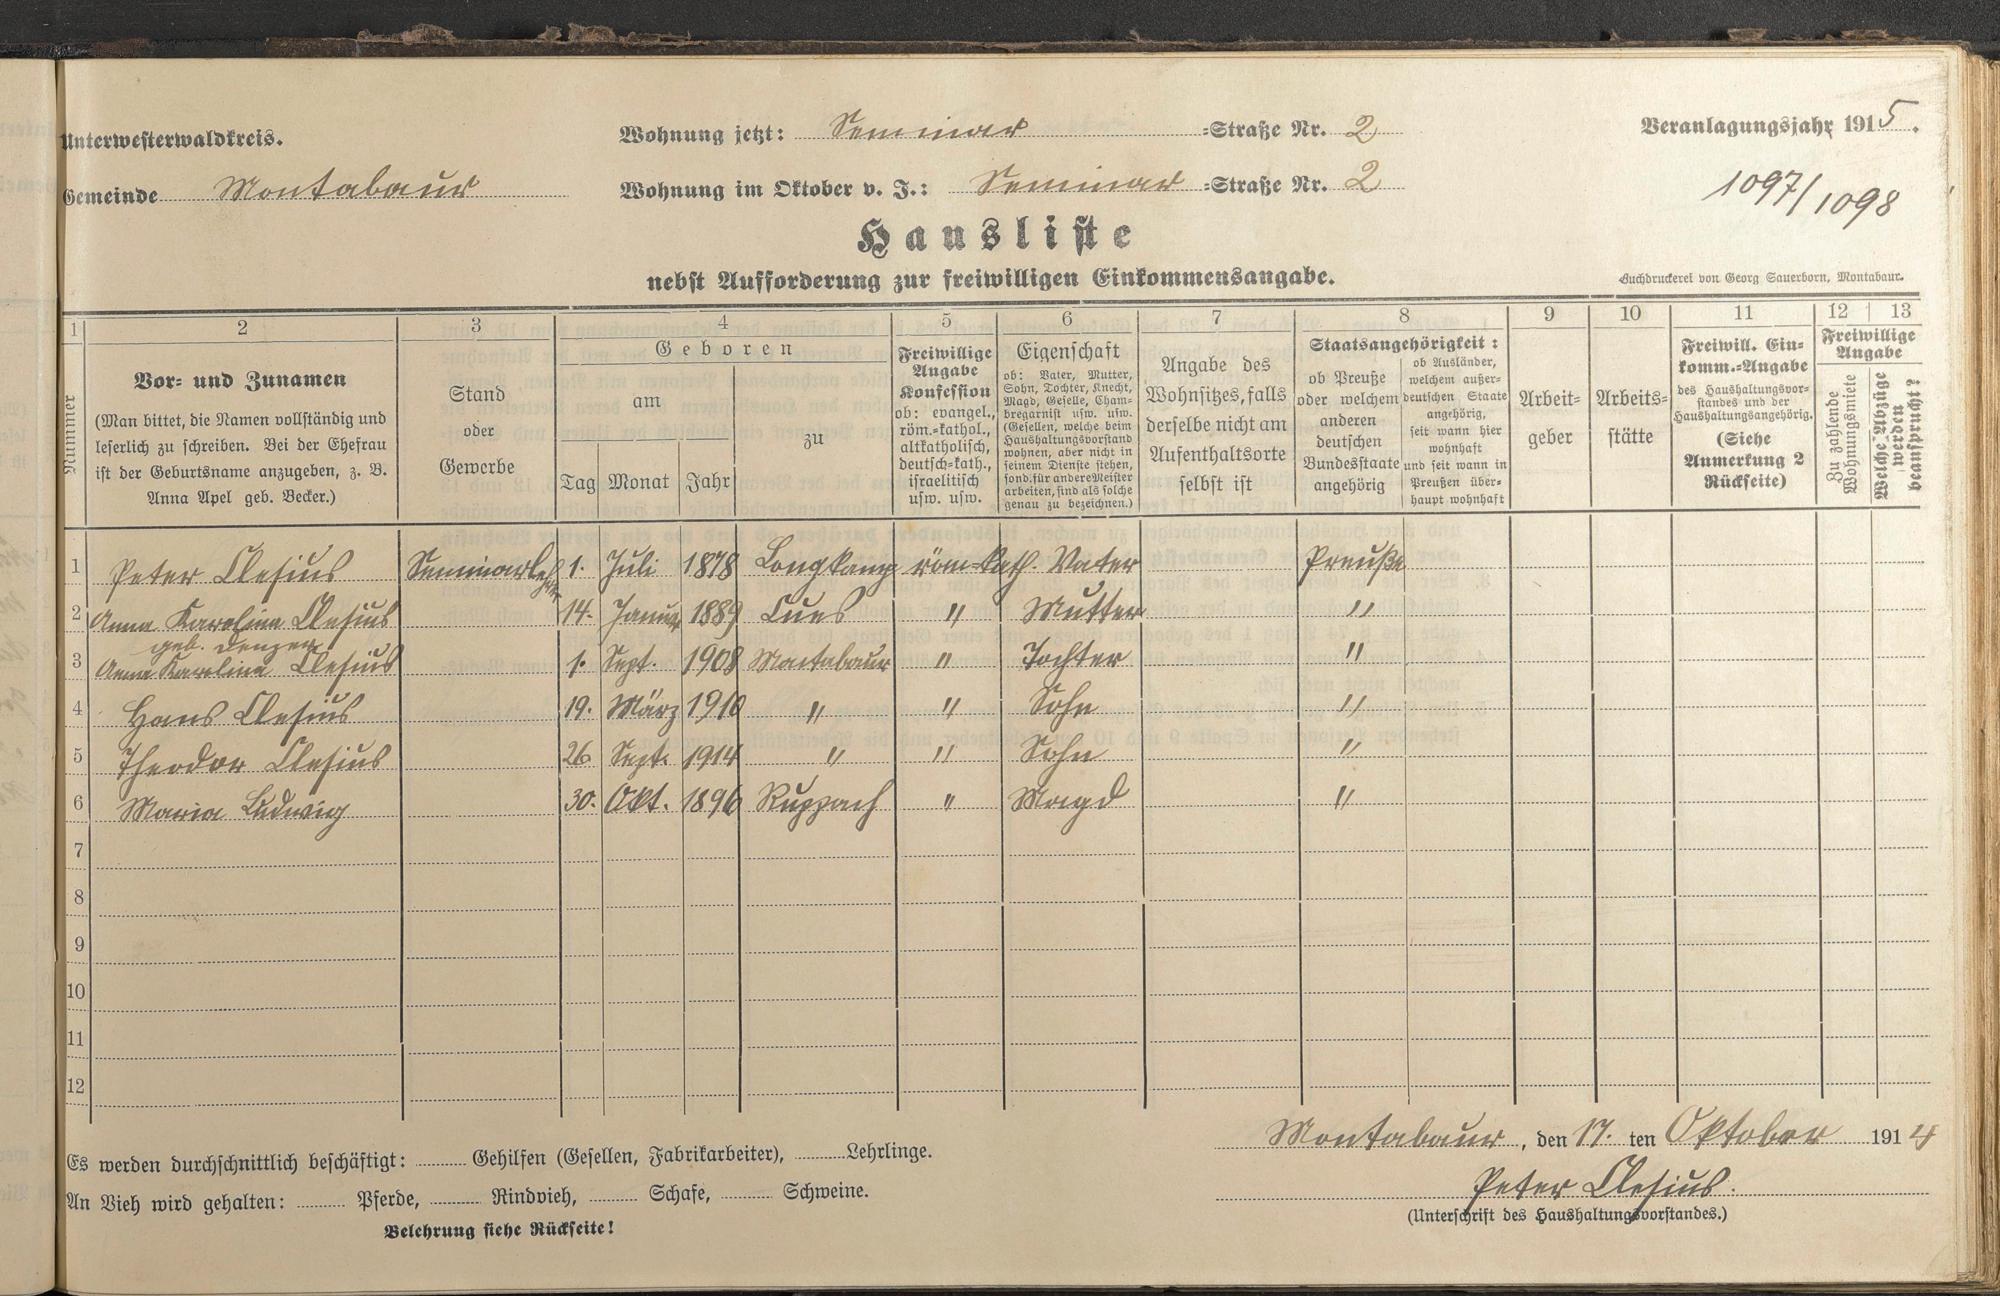 Unterwesterwaldkreis.
Gemeinde Montabaur
Wohnung jetzt: Seminar =Straße Nr. 2
Wohnung im Oktober v. J.: Seminar =Straße Nr. 2
Veranlagungsjahr 1915.
1097/1098
Hausliste
nebst Aufforderung zur freiwilligen Einkommensangabe.
Buchdruckerei von Georg Sauerborn, Montabaur.
1 2 3 4 5 6 7 8 9 10 11 12 13
Nummer
Vor- und Zunamen
(Man bittet, die Namen vollständig und
leserlich zu schreiben. Bei der Ehefrau
ist der Geburtsname anzugeben, z. B.
Anna Apel geb. Becker.)
Stand
oder
Gewerbe
Geboren
am
Tag Monat Jahr
zu
Freiwillige
Angabe
Konfession
ob: evangel.,
röm.=kathol.,
altkatholisch,
deutsch=kath.,
israelitisch
usw. usw.
Eigenschaft
ob: Vater, Mutter,
Sohn, Tochter, Knecht,
Magd, Geselle, Cham-
bregarnist usw. usw.
(Gesellen, welche beim
Haushaltungsvorstand
wohnen, aber nicht in
seinem Dienste stehen,
sond. für andere Meister
arbeiten, sind als solche
genau zu bezeichnen.)
Angabe des
Wohnsitzes, falls
derselbe nicht am
Aufenthaltsorte
selbst ist
Staatsangehörigkeit:
ob Preuße
oder welchem
anderen
deutschen
Bundesstaate
angehörig
ob Ausländer,
welchem außer-
deutschen Staate
angehörig,
seit wann hier
wohnhaft
und seit wann in
Preußen über-
haupt wohnhaft
Arbeit-
geber
Arbeits-
stätte
Freiwill. Ein-
komm.=Angabe
des Haushaltungsvor-
standes und der
Haushaltungsangehörig.
(Siehe
Anmerkung 2
Rückseite)
Freiwillige
Angabe
Zu zahlende
Wohnungsmiete
Welche Abzüge
werden
beansprucht?
1 Peter Clesius Seminarlehrer 1. Juli 1878 Longkamp röm=kath. Vater Preuße
2 Anna Karolina Clesius 14. Januar 1889 Cues " Mutter "
geb. Denzer
3 Anna Karolina Clesius 1. Sept. 1908 Montabaur " Tochter "
4 Hans Clesius 19. März 1910 " " Sohn "
5 Theodor Clesius 26 Sept. 1914 " " Sohn "
6 Maria Ludwig 30. Okt. 1896 Ruppach " Magd "
7
8
9
10
11
12
Es werden durchschnittlich beschäftigt: Gehilfen (Gesellen, Fabrikarbeiter), Lehrlinge.
An Vieh wird gehalten: Pferde, Rindvieh, Schafe, Schweine.
Belehrung siehe Rückseite!
Montabaur, den 17. ten Oktober 1914
Peter Clesius.
(Unterschrift des Haushaltungsvorstandes.)